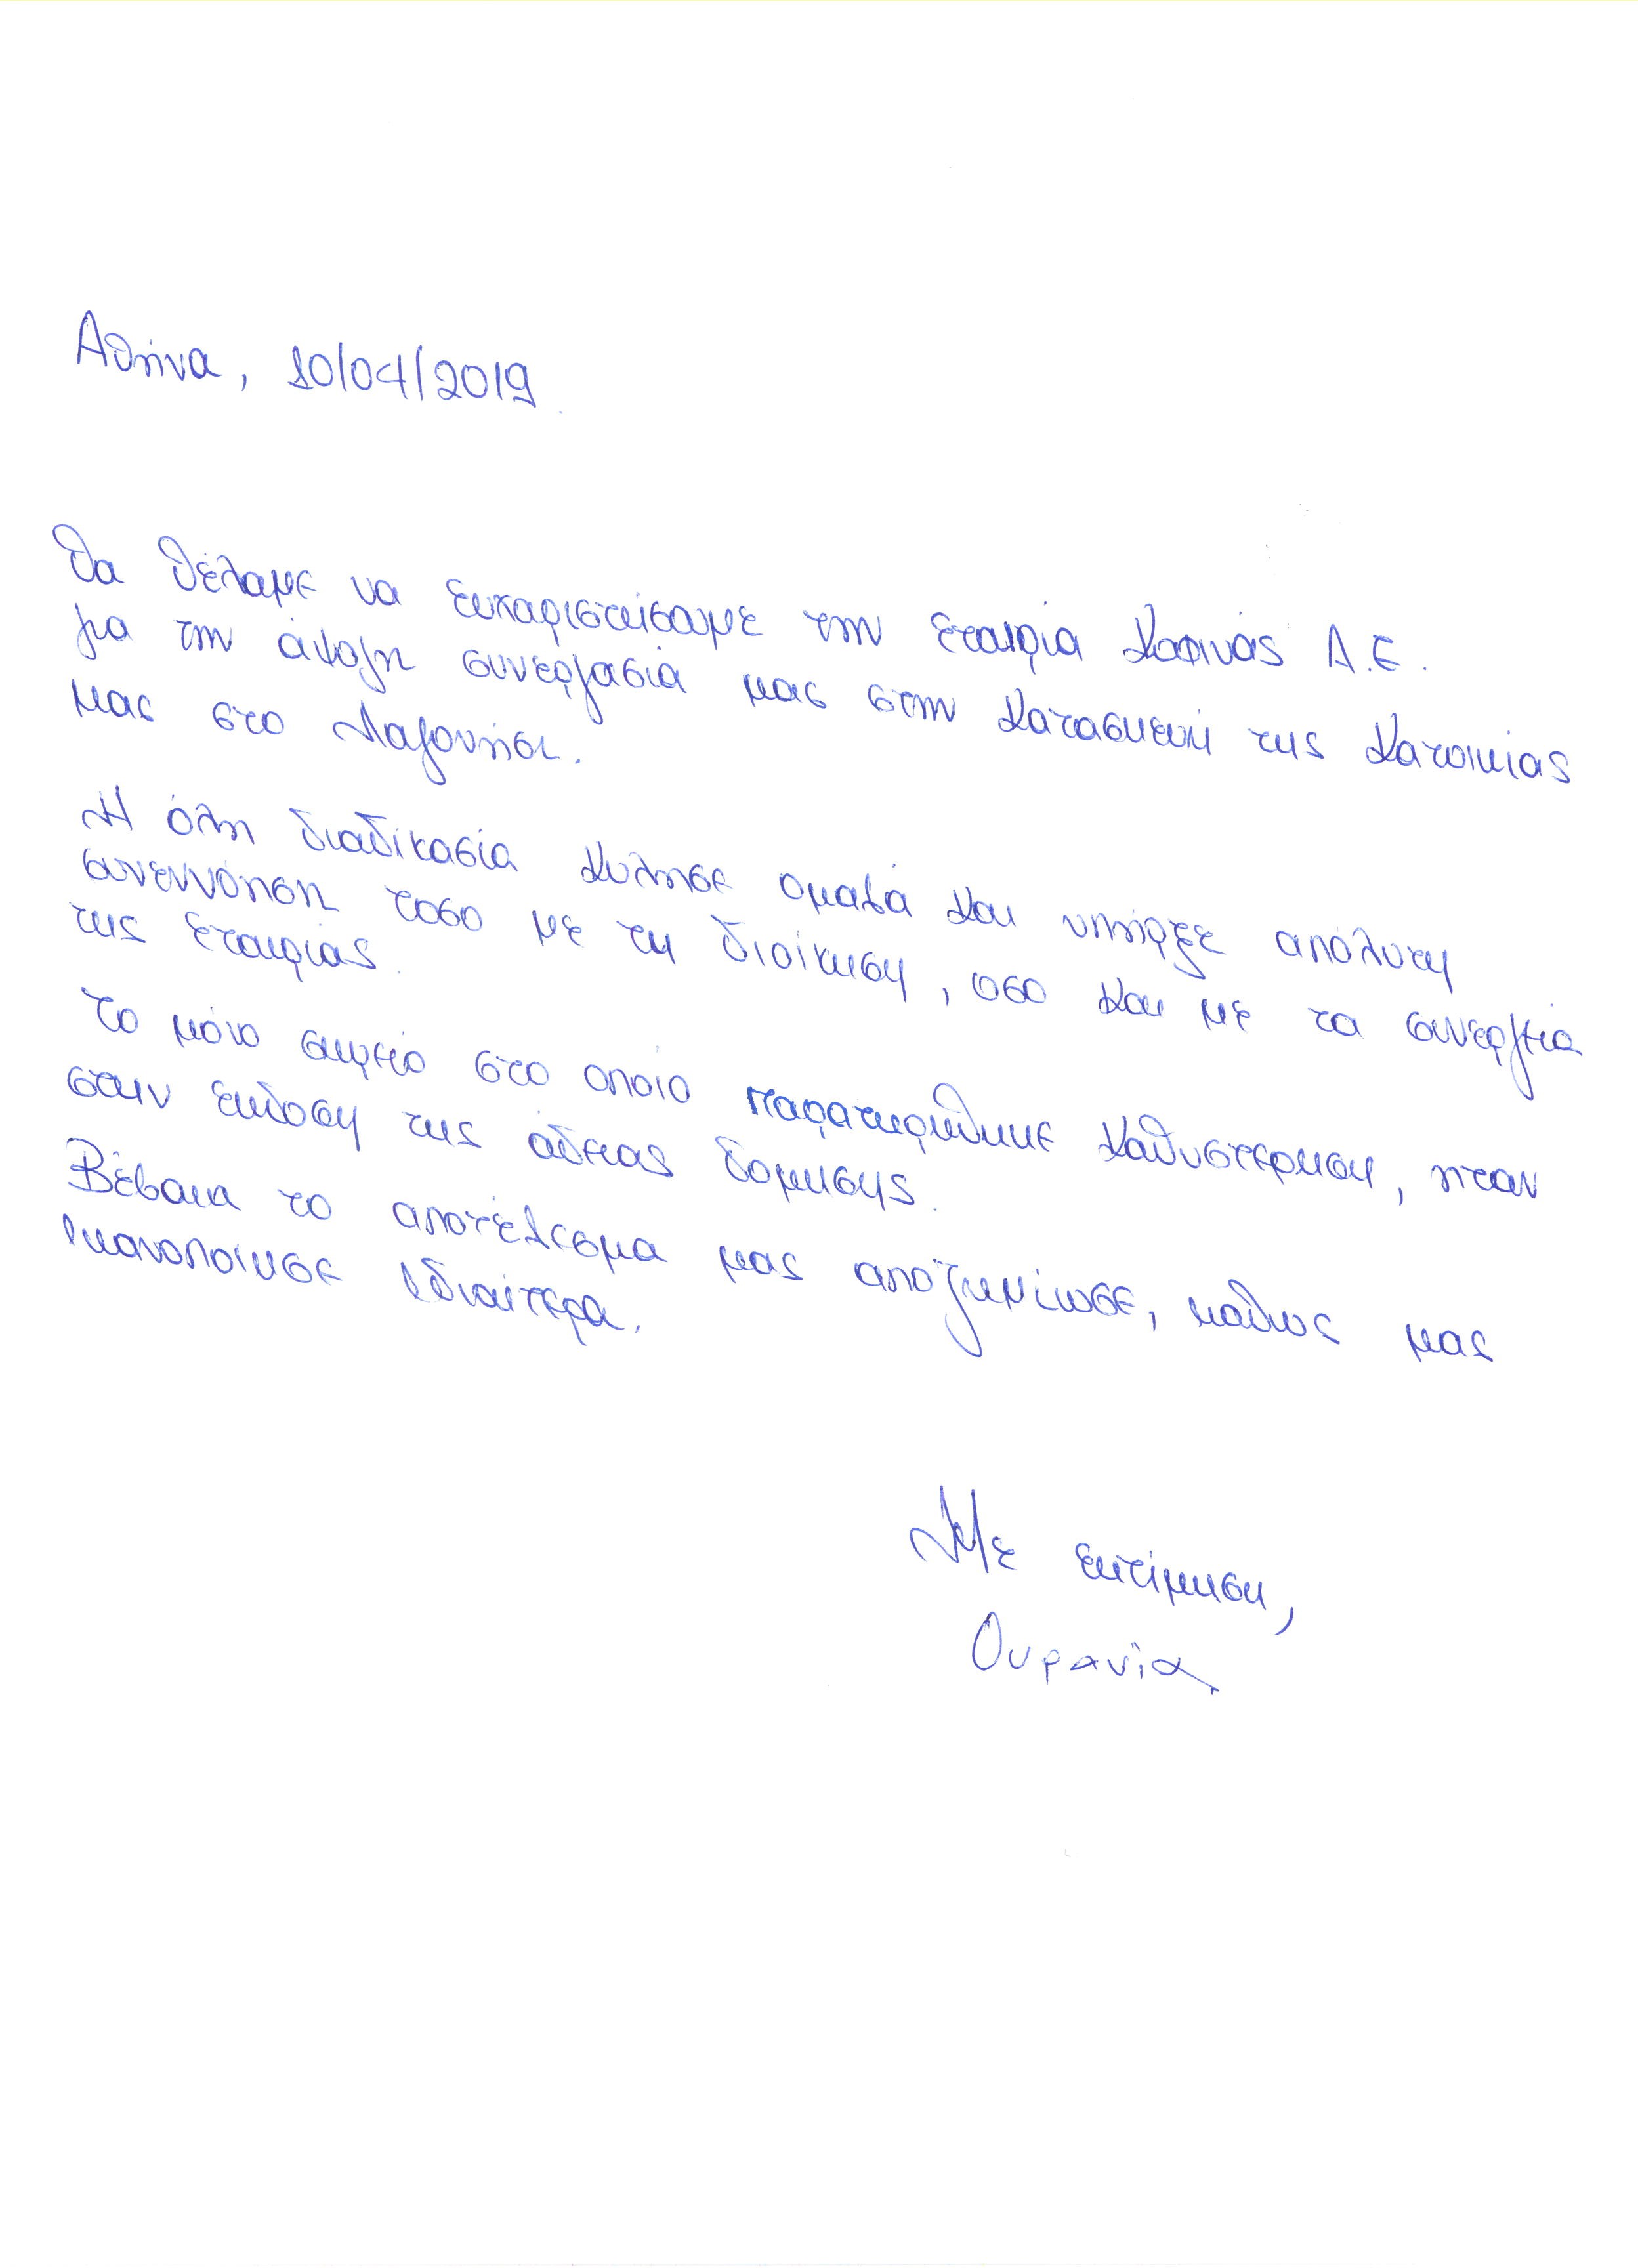 Αθήνα, 10/04/2019
Θα θέλαμε να ευχαριστείσουμε την εταιρία Καπινάς Α.Ε.
για την άψογη συνεργασία μας στην κατασκευή της κατοικίας
μας στο Λαγονήσι.
Η όλη διαδικασία κυλησε ομαλά και υπήρξε απόλυτη
συνεννόηση τοσο με τη διοίκηση, οσο και με τα συνεργεία
της εταιρίας.
Το μόνο σημείο στο οποίο παρατηρήθηκε καθυστερηση, ηταν
στην εκδοση της αδειας δομησης.
Βέβαια το αποτέλεσμα μας αποζημίωσε, καθως μας
ικανοποιησε ιδιαίτερα.
Με εκτίμηση,
Ουρανία